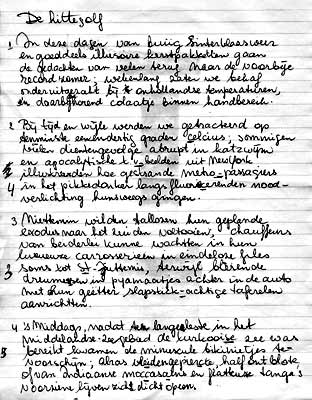 De hittegolf
1 In deze dagen van buiig Sinterklaasweer
en goeddeels illusoire kerstpakketten gaan
de gedachten van velen terug naar de voorbije
record zomer; wekenlang zaten we half
onderuitgezakt bij onhollandse temperaturen,
en doorlopend colaatje binnen handbereik.
2 Bij tijd en wijle werden we getracteerd op
tenminste eenendertig graden Celcius; sommigen
vielen dientengevolge abrupt in katzwijm
en apocalyptische t.v.-beelden uit NewYork
illustreerden hoe gestrande metro-passagiers
4 in het pikkedonker langs fluorescerende nood-
verlichting huns weegs gingen.
3 Niettemin wilden tallozen hun geplande
exodus naar het zuiden voltooien, chauffeurs
van beiderlei kunne wachtten in hun
luxueuze carrosserieën in eindeloze files
3 soms tot St-Juttemis, terwijl blèrende
dreumesen in pyjamaatjes achter in de auto
met hun geiten slapstick-achtige taferelen
aanrichtten.
4 's Middags, nadat ten langen leste in het
middellandse-zeegebied de turkooise zee was
bereikt kwamen de minuscule bikinietjes te-
voorschijn; alras vleiden gepiercete, half ontblote
of van indiaanse mocassins en flatteuze tanga's
voorziene lijven zich dicht opeen.